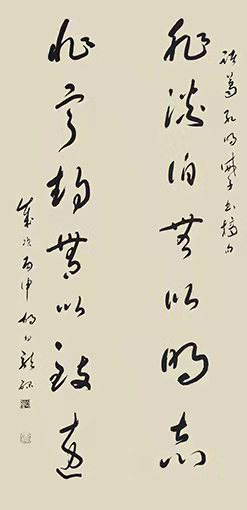 諸葛孔明誡子書摘句
非淡泊無以明志
非寧靜無以致遠
歲次丙申